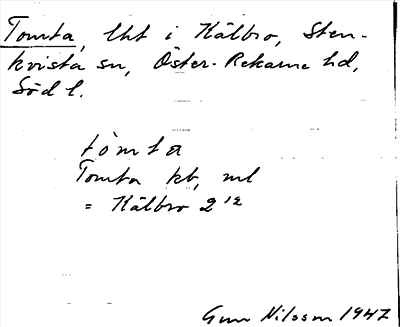 Tomta, lht i Hälbro, Sten-
kvista sn, Öster-Rekarne hd,
Söd l.
tòmta
Tomta kb, ml
= Hälbro 2¹²
Gun Nilsson 1947